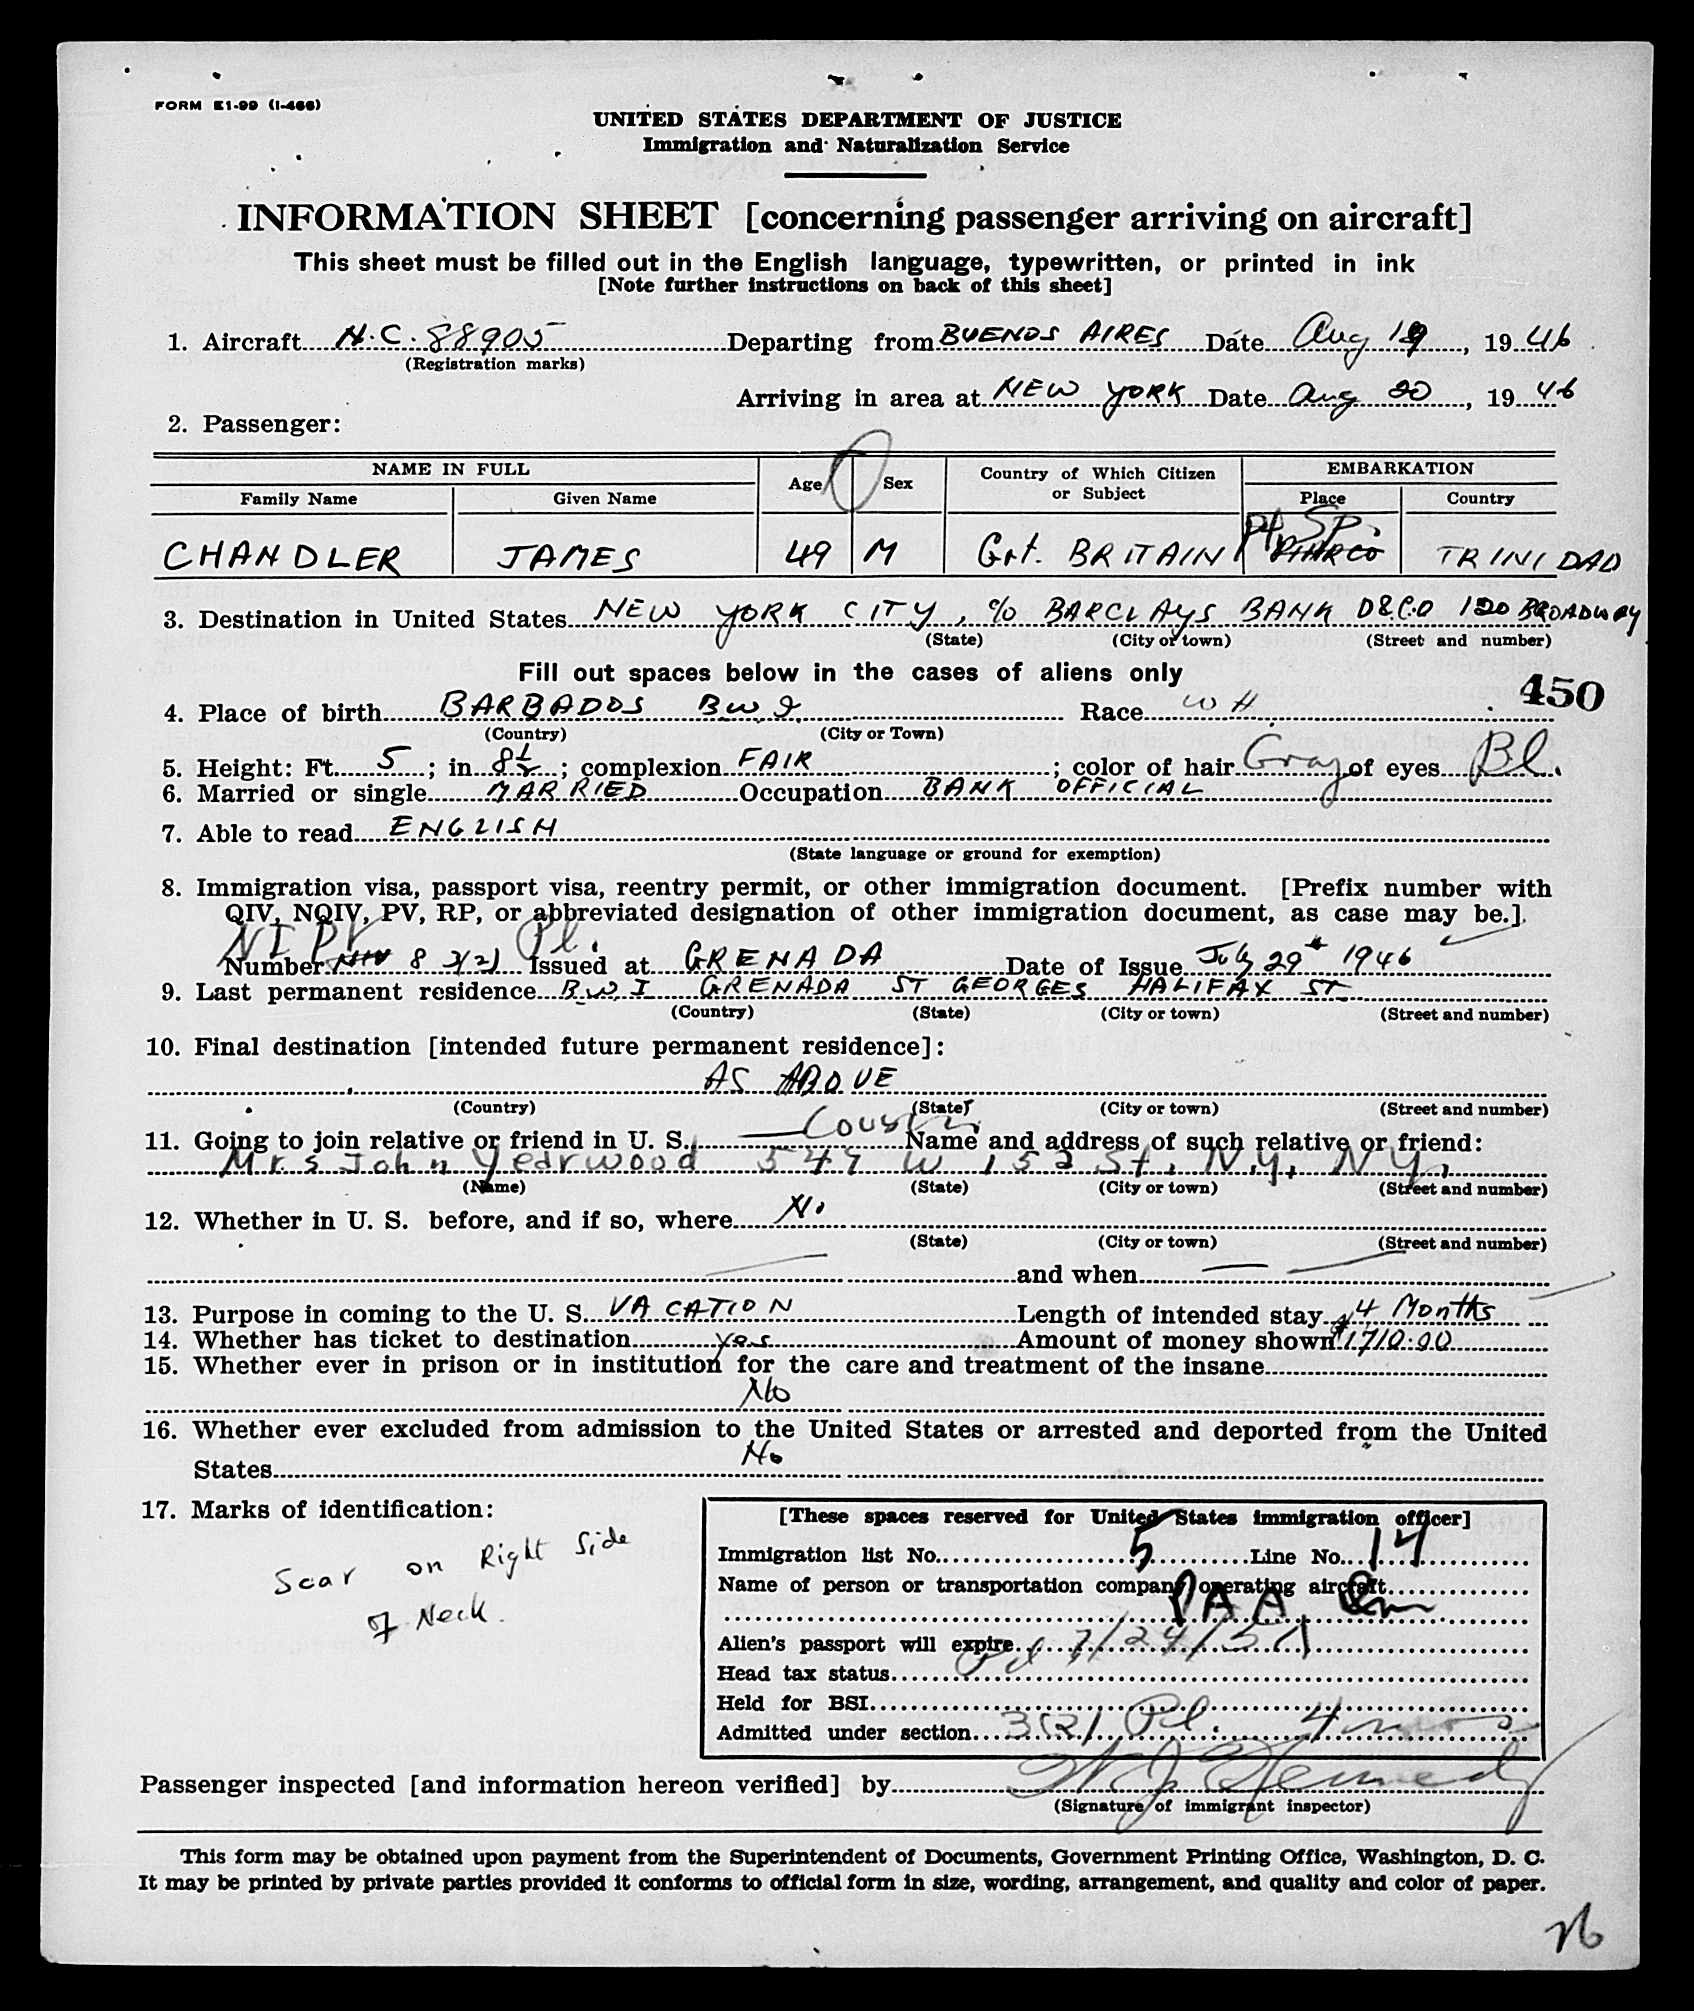 FORM E1-99 (I-466)
UNITED STATES DEPARTMENT OF JUSTICE
Immigration and Naturalization Service
INFORMATION SHEET [concerning passenger arriving on aircraft]
This sheet must be filled out in the English language, typewritten, or printed in ink
[Note further instructions on back of this sheet]
1. Aircraft N.C. 88905 Departing from BUENOS AIRES Date Aug 19, 1946
(Registration marks)
Arriving in area at NEW YORK Date Aug 20, 1946
2. Passenger:
NAME IN FULL Age Sex Country of Which Citizen or Subject EMBARKATION
Family Name Given Name Place Country
Pt. Sp.
CHANDLER JAMES 49 M Grt. BRITAIN PIARCO TRINIDAD
3. Destination in United States NEW YORK CITY, c/o BARCLAYS BANK D&C.O 120 BROADWAY
(State) (City or town) (Street and number)
Fill out spaces below in the cases of aliens only
450
4. Place of birth BARBADOS B.W.I. Race WH
(Country) (City or Town)
5. Height: Ft. 5; in. 8½; complexion FAIR; color of hair Gray of eyes Bl.
6. Married or single MARRIED Occupation BANK OFFICIAL
7. Able to read ENGLISH
(State language or ground for exemption)
8. Immigration visa, passport visa, reentry permit, or other immigration document. [Prefix number with
QIV, NQIV, PV, RP, or abbreviated designation of other immigration document, as case may be.]
NI PV Pl.
Number NIV 8 3(2) Issued at GRENADA Date of Issue July 29th 1946
9. Last permanent residence B.W.I GRENADA ST GEORGES HALIFAX ST
(Country) (State) (City or town) (Street and number)
10. Final destination [intended future permanent residence]:
AS ABOVE
(Country) (State) (City or town) (Street and number)
11. Going to join relative or friend in U. S. Cousin Name and address of such relative or friend:
Mrs John Yearwood 549 W 152 St. N.Y. N.Y.
(Name) (State) (City or town) (Street and number)
12. Whether in U. S. before, and if so, where No
(State) (City or town) (Street and number)
and when
13. Purpose in coming to the U. S. VACATION Length of intended stay 4 Months
14. Whether has ticket to destination Yes Amount of money shown $1710.00
15. Whether ever in prison or in institution for the care and treatment of the insane
No
16. Whether ever excluded from admission to the United States or arrested and deported from the United
States No
17. Marks of identification:
Scar on Right Side
of Neck.
[These spaces reserved for United States immigration officer]
Immigration list No. 5 Line No. 14
Name of person or transportation company operating aircraft
PAA
Alien's passport will expire 7/24/51
Head tax status Pd
Held for BSI
Admitted under section 3(2) Pl. 4 mos
Passenger inspected [and information hereon verified] by W J Kennedy
(Signature of immigrant inspector)
This form may be obtained upon payment from the Superintendent of Documents, Government Printing Office, Washington, D. C.
It may be printed by private parties provided it conforms to official form in size, wording, arrangement, and quality and color of paper.
26